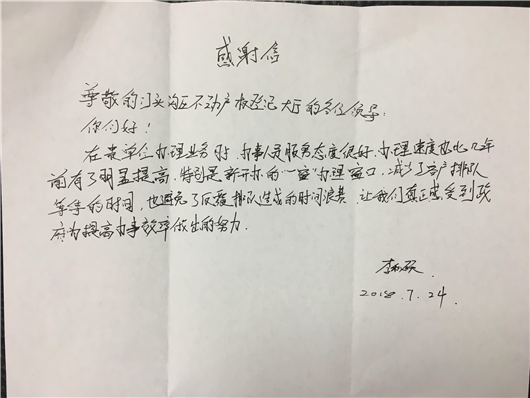 感谢信
尊敬的门头沟区不动产权登记大厅的各位领导:
你们好!
在贵单位办理业务时,办事人员服务态度很好,办理速度也比几年
前有了明显提高,特别是新开办的“一窗”办理窗口,减少了客户排队
等待的时间,也避免了反复排队造成的时间浪费,让我们真正感受到政
府为提高办事效率做出的努力.
李
2018.7.24.